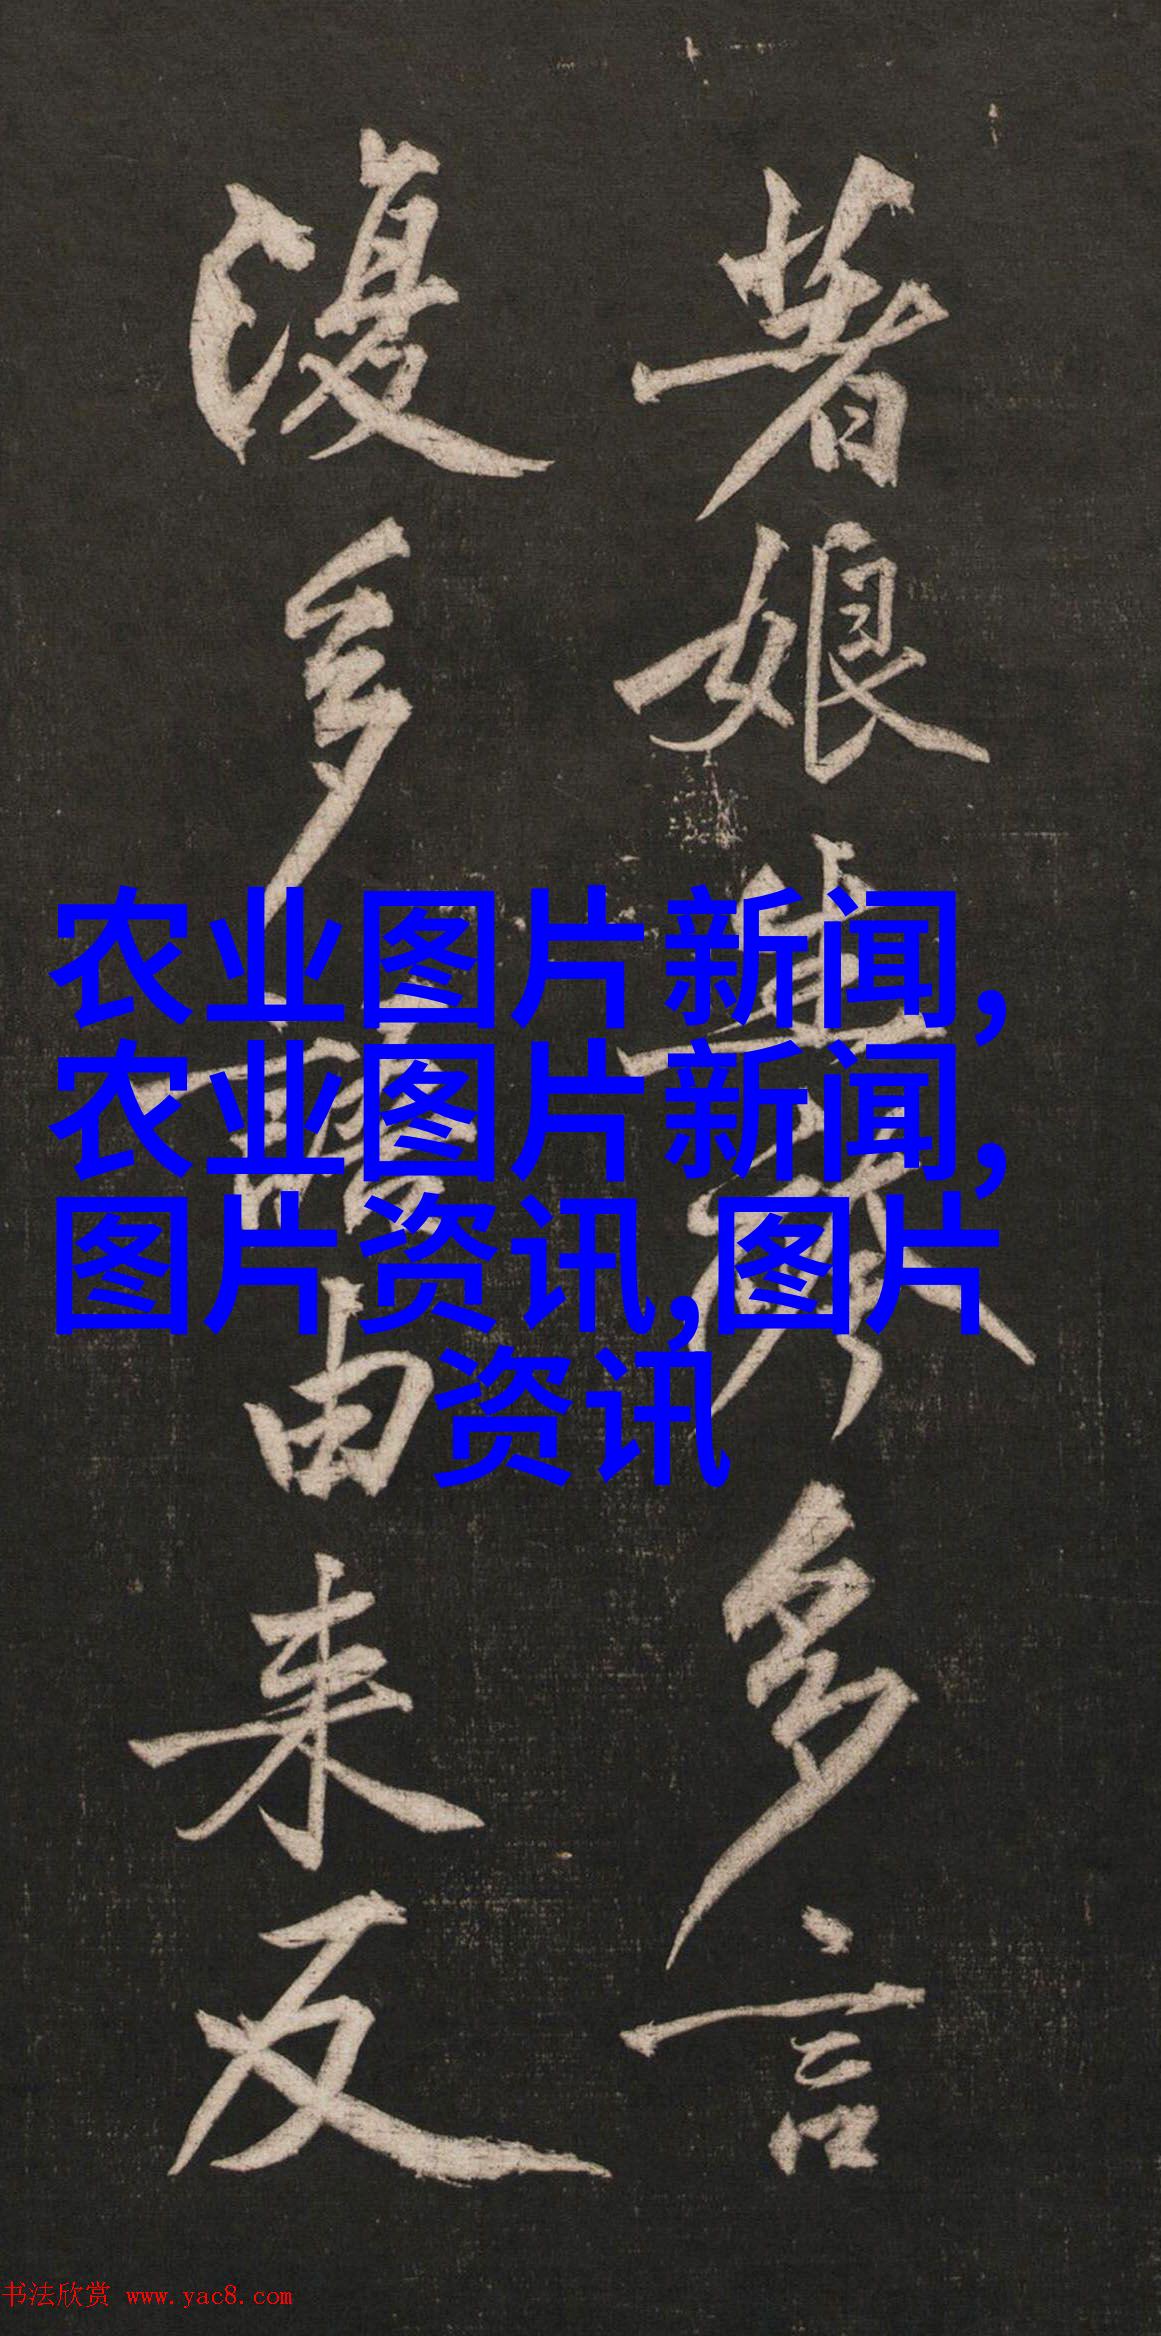 著娘多言
復多語由来反
农业图片新闻,
农业图片新闻,
图片资讯,图片
资讯
书法欣赏 www.yac8.com